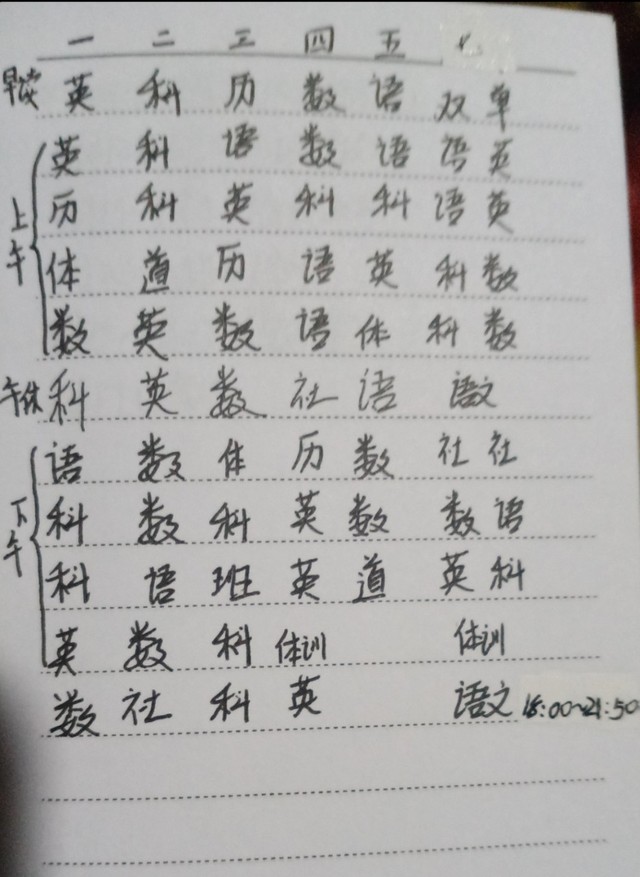 一 二 三 四 五
早读 英 科 历 数 语 双 单
英 科 语 数 语 语 英
上午 历 科 英 科 科 语 英
体 道 历 语 英 科 数
数 英 数 语 体 科 数
午休 科 英 数 社 语 语文
语 数 体 历 数 社 社
下午 科 数 科 英 数 数 语
科 语 班 英 道 英 科
英 数 科 体训 体训
数 社 科 英 语文 18:00~21:50